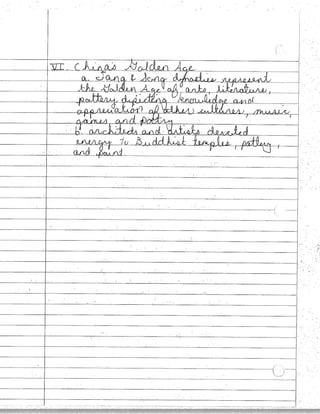 VI. China's Golden Age
a. Tang & Song dynasties represent
the Golden Age of arts, literature,
pottery depicting knowledge and
appreciation of other cultures, music,
games, and poetry
b. architects and artists devoted
energy to Buddhist temples, pottery,
and paint